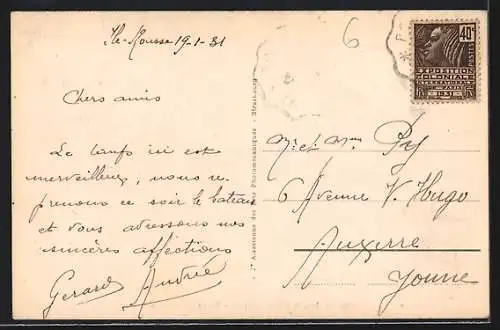 Ile-Rousse 19-1-31
6
Chers amis
Le temps ici est
merveilleux, nous re
prenons ce soir le bateau
et vous adressons nos
sincères affections
Gerard Andrée
Sté Anonyme des Photomécaniques - Strasbourg
40c
POSTES
EXPOSITION
COLONIALE
INTERNATIONALE
PARIS
1931
Mr et Mme Py
6 Avenue V. Hugo
Auxerre
Yonne